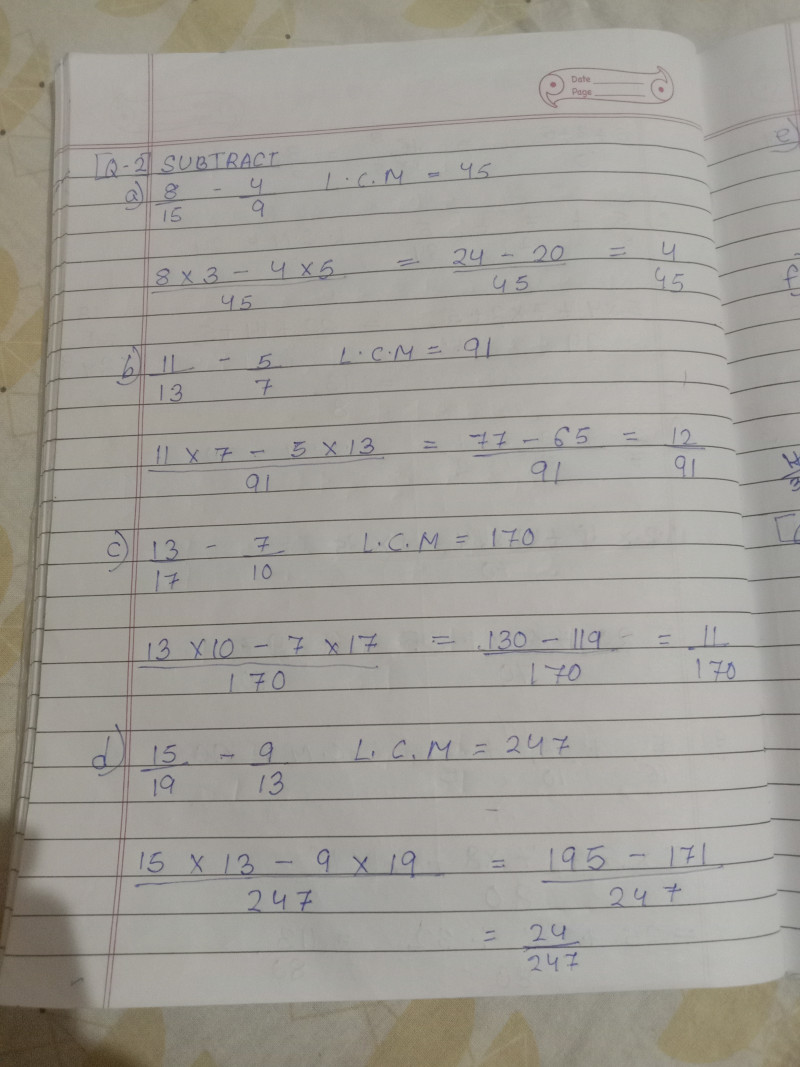 Date
Page
[Q-2] SUBTRACT
a) 8/15 - 4/9 L.C.M = 45
8 × 3 - 4 × 5 / 45 = 24 - 20 / 45 = 4/45
b) 11/13 - 5/7 L.C.M = 91
11 × 7 - 5 × 13 / 91 = 77 - 65 / 91 = 12/91
c) 13/17 - 7/10 L.C.M = 170
13 × 10 - 7 × 17 / 170 = 130 - 119 / 170 = 11/170
d) 15/19 - 9/13 L.C.M = 247
15 × 13 - 9 × 19 / 247 = 195 - 171 / 247
= 24/247
e)
f)